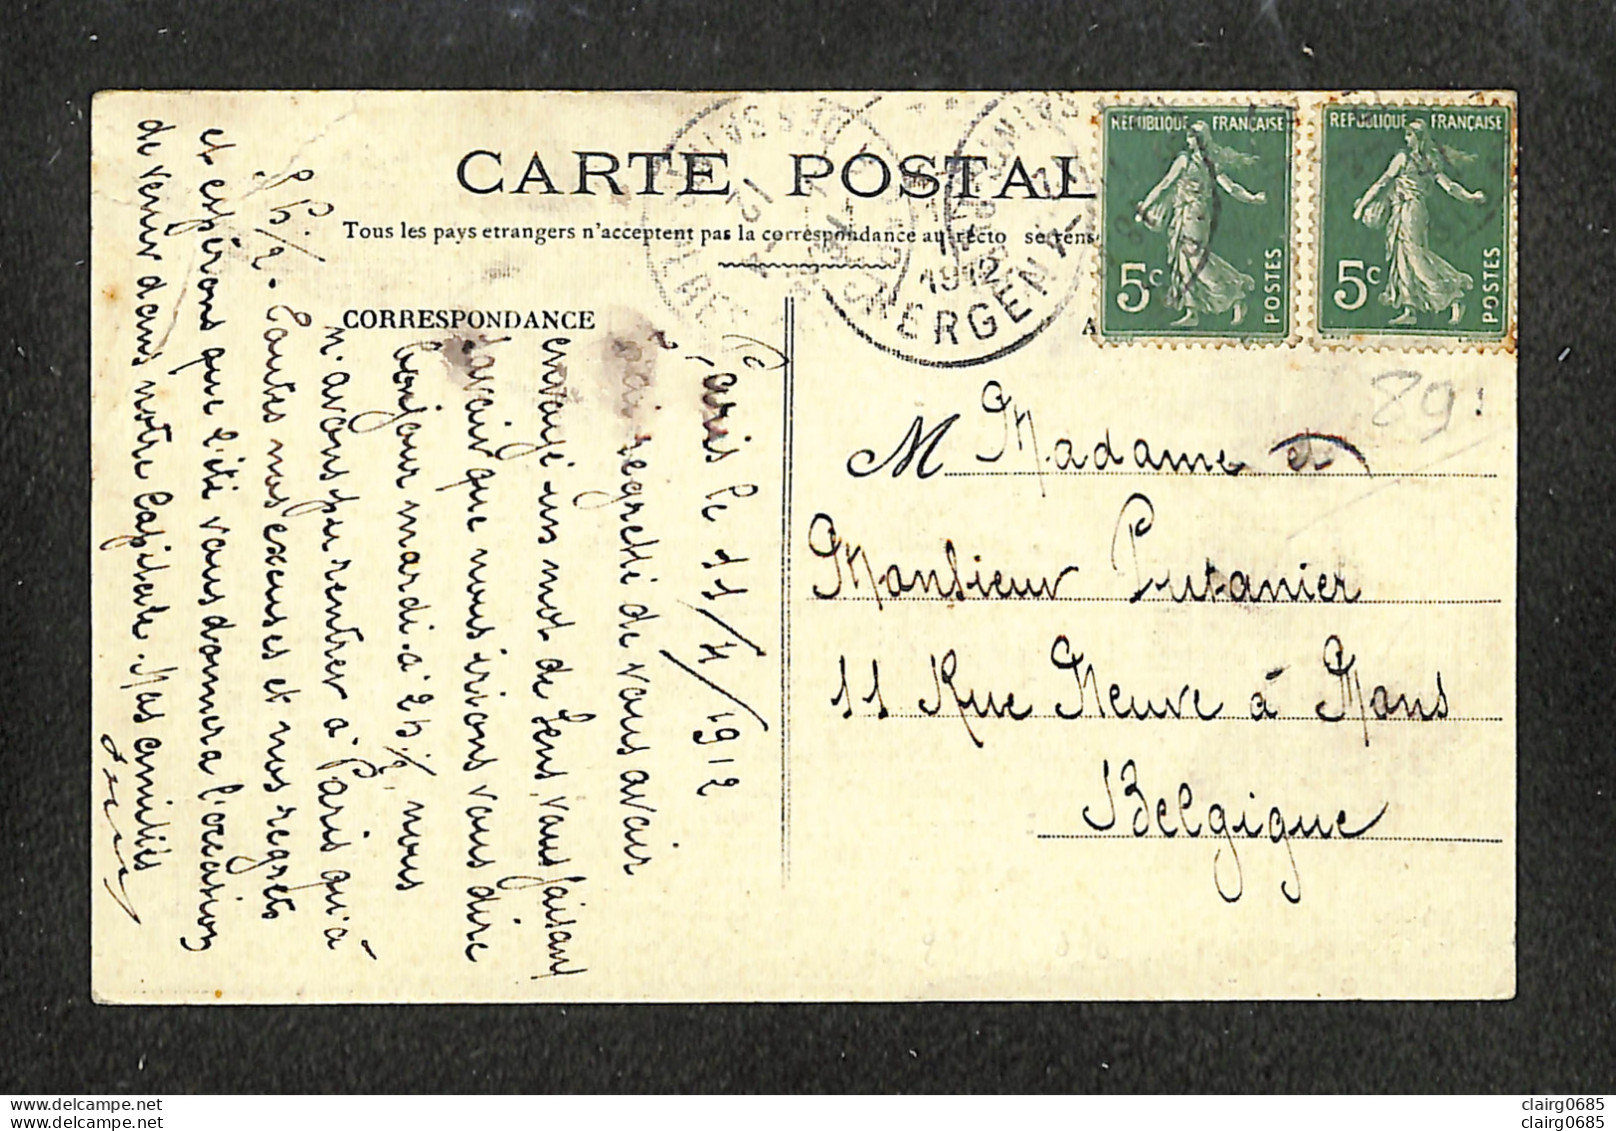 CARTE POSTALE
Tous les pays etrangers n'acceptent pas la correspondance au recto se rens
CORRESPONDANCE
RÉPUBLIQUE FRANÇAISE
5c
POSTES
RÉPUBLIQUE FRANÇAISE
5c
POSTES
1912
89
M Madame et
Monsieur Putanier
11 Rue Neuve à Mons
Belgique
Paris le 11/4/1912
J'ai regretté de vous avoir
envoyé un mot de Lens, vous faisant
savoir que nous irions vous dire
bonjour mardi à 2h½, nous
n'avons pu rentrer à Paris qu'à
5h½. Toutes nos excuses et nos regrets
et espérons que l'été vous donnera l'occasion
de venir dans notre Capitale. Mes amitiés
clairg0685
clairg0685
clairg0685
clairg0685